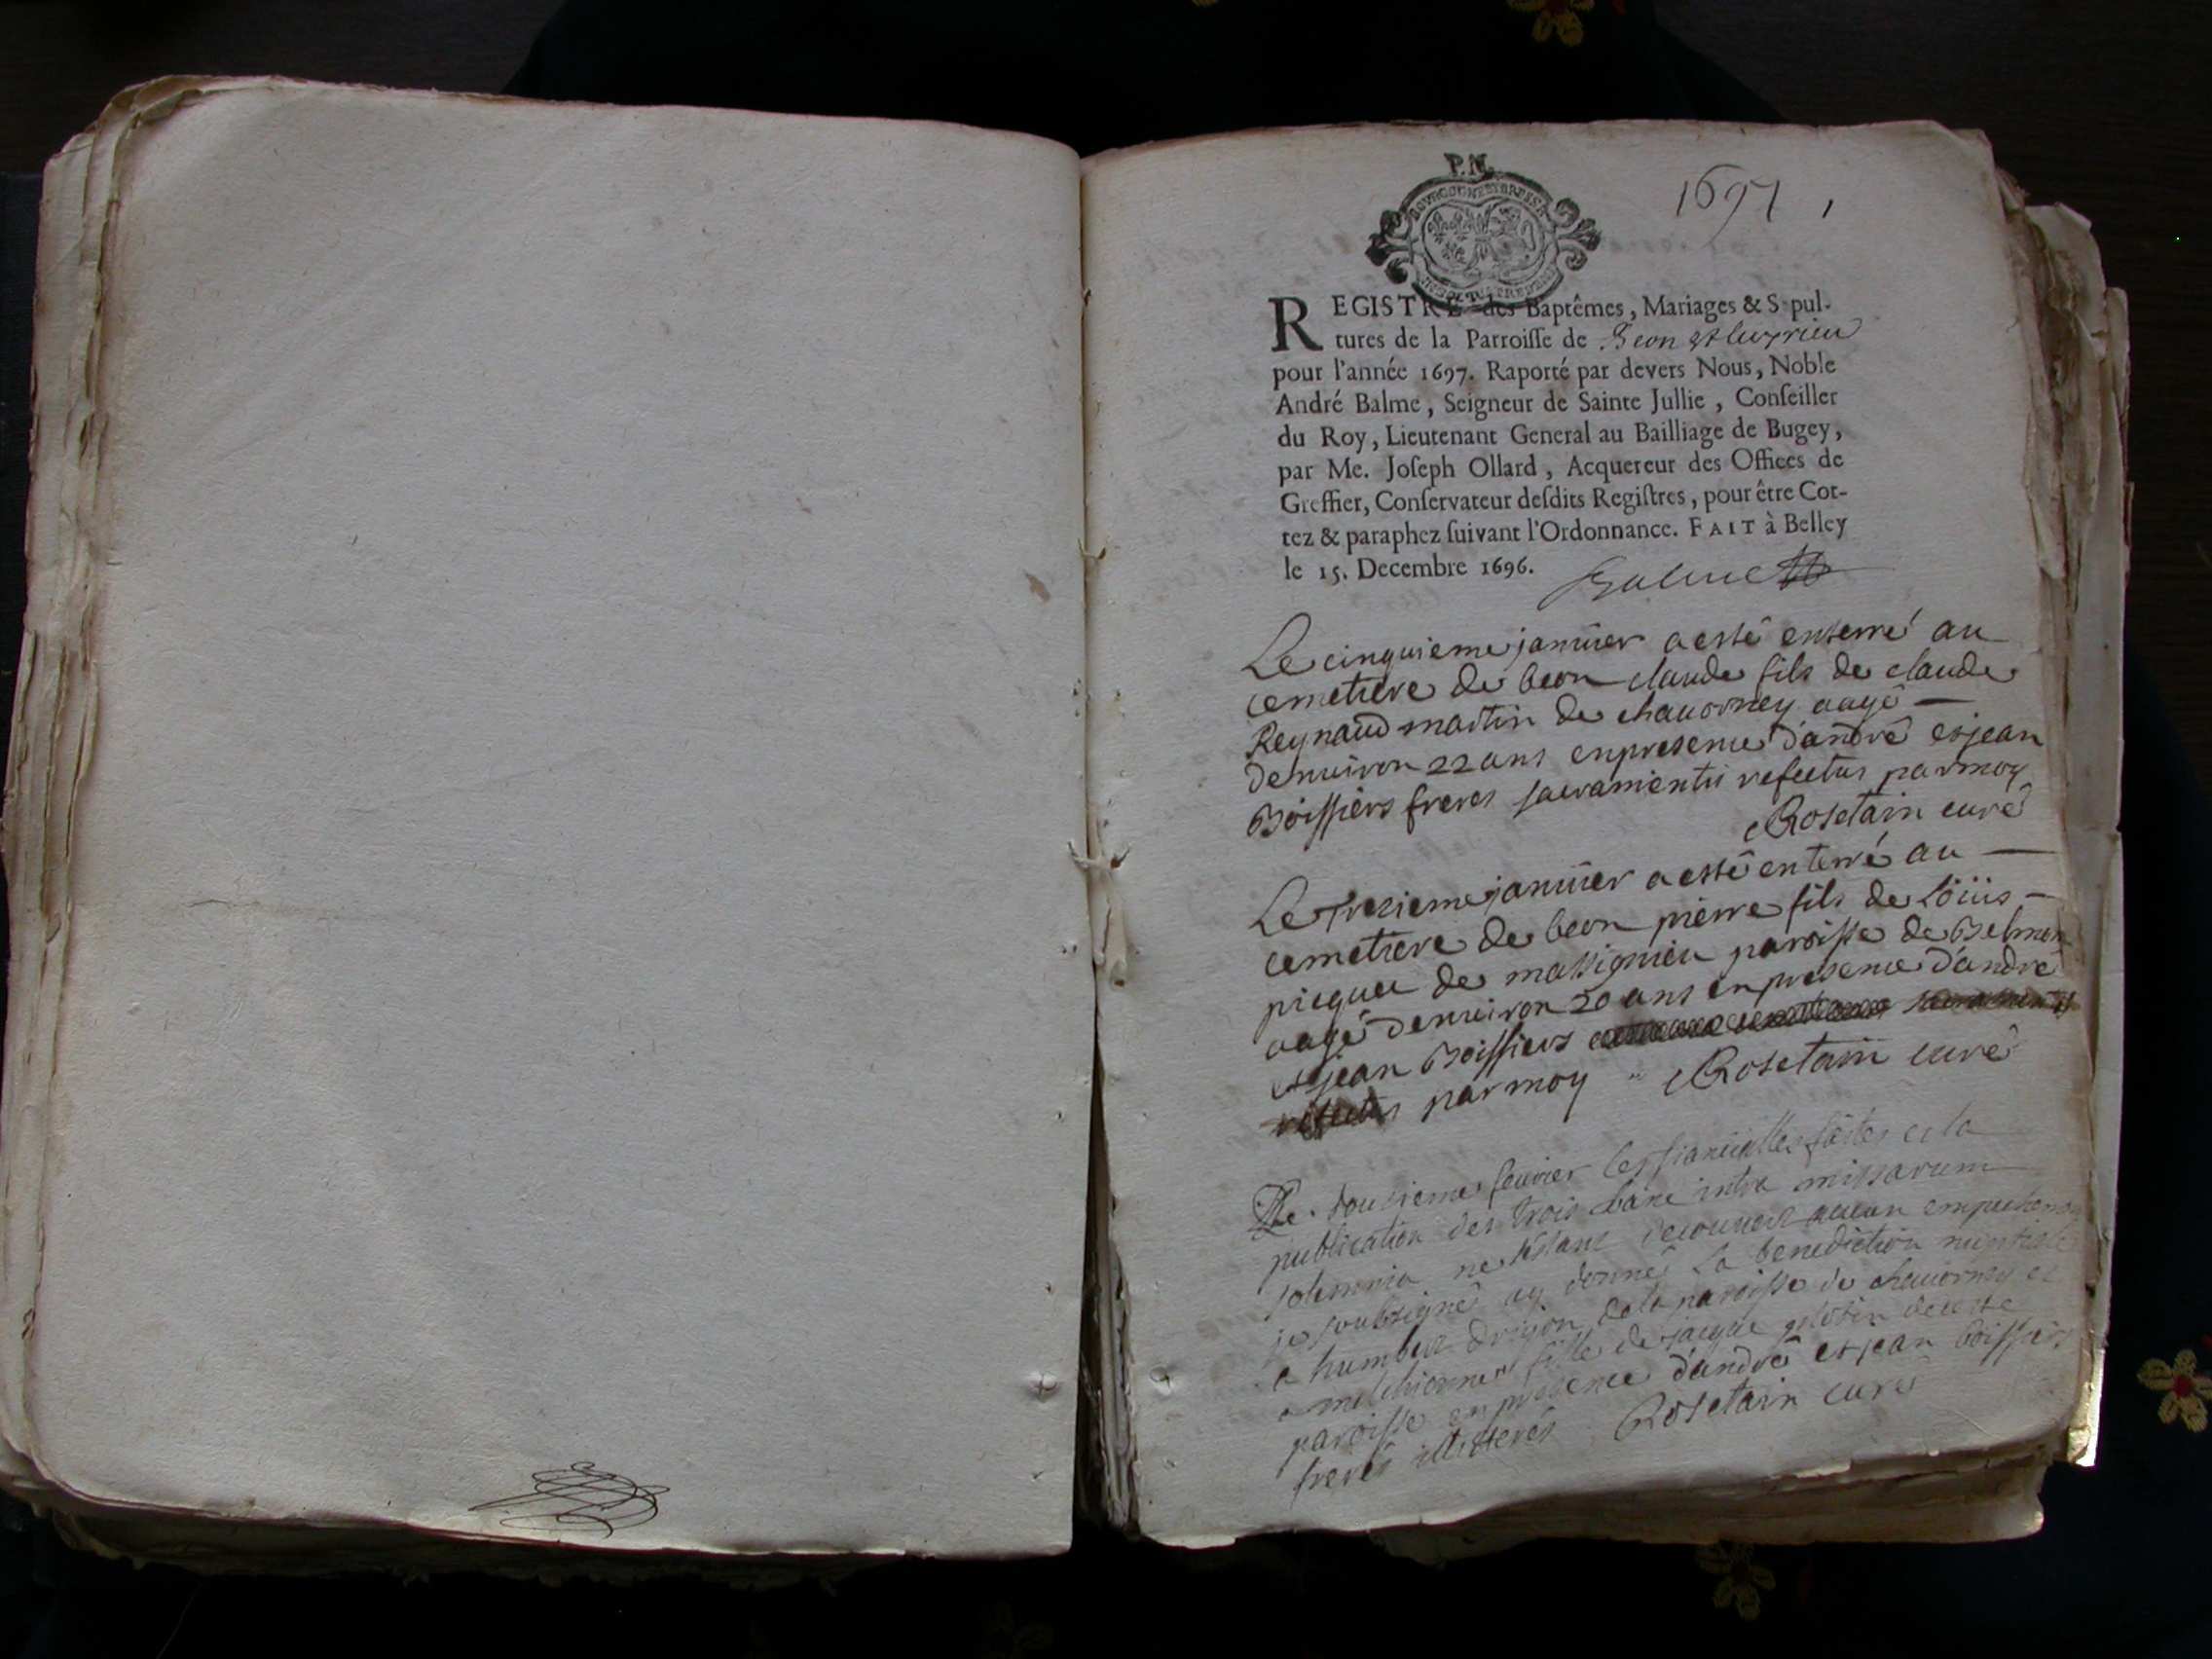 P.N.
1697 1
REGISTRE des Baptêmes, Mariages & Sepul-
tures de la Parroisse de Beon et luyrieu
pour l'année 1697. Raporté par devers Nous, Noble
André Balme, Seigneur de Sainte Jullie, Conseiller
du Roy, Lieutenant General au Bailliage de Bugey,
par Me. Joseph Ollard, Acquereur des Offices de
Greffier, Conservateur desdits Registres, pour être Cot-
tez & paraphez suivant l'Ordonnance. FAIT à Belley
le 15. Decembre 1696. Balme
Le cinquieme januier a esté enterré au
cemetiere de beon claude fils de claude
Reynaud martin de chauorney aagé
denuiron 22 ans en presence d'andré et jean
Boissiers freres sacramentis refectus par moy
Rosetain curé
Le tresieme januier a esté enterré au
cemetiere de beon pierre fils de Loüis
picquet de massignieu paroisse de Belmon
aagé denuiron 20 ans en presence d'andré
et jean Boissiers sacramentis
refectus par moy Rosetain curé
Le dousieme feurier les fiancialles faites et la
publication des trois bans intra missarum
solemnia ne s'estant decouuert aucun empechem
je soubsigné ay donné la benediction nuptiale
a humbert drizon de la paroisse de chauorney et
a melchionne fille de jacque de cette
paroisse en presence d'andré et jean boissiers
freres illitterés Rosetain curé